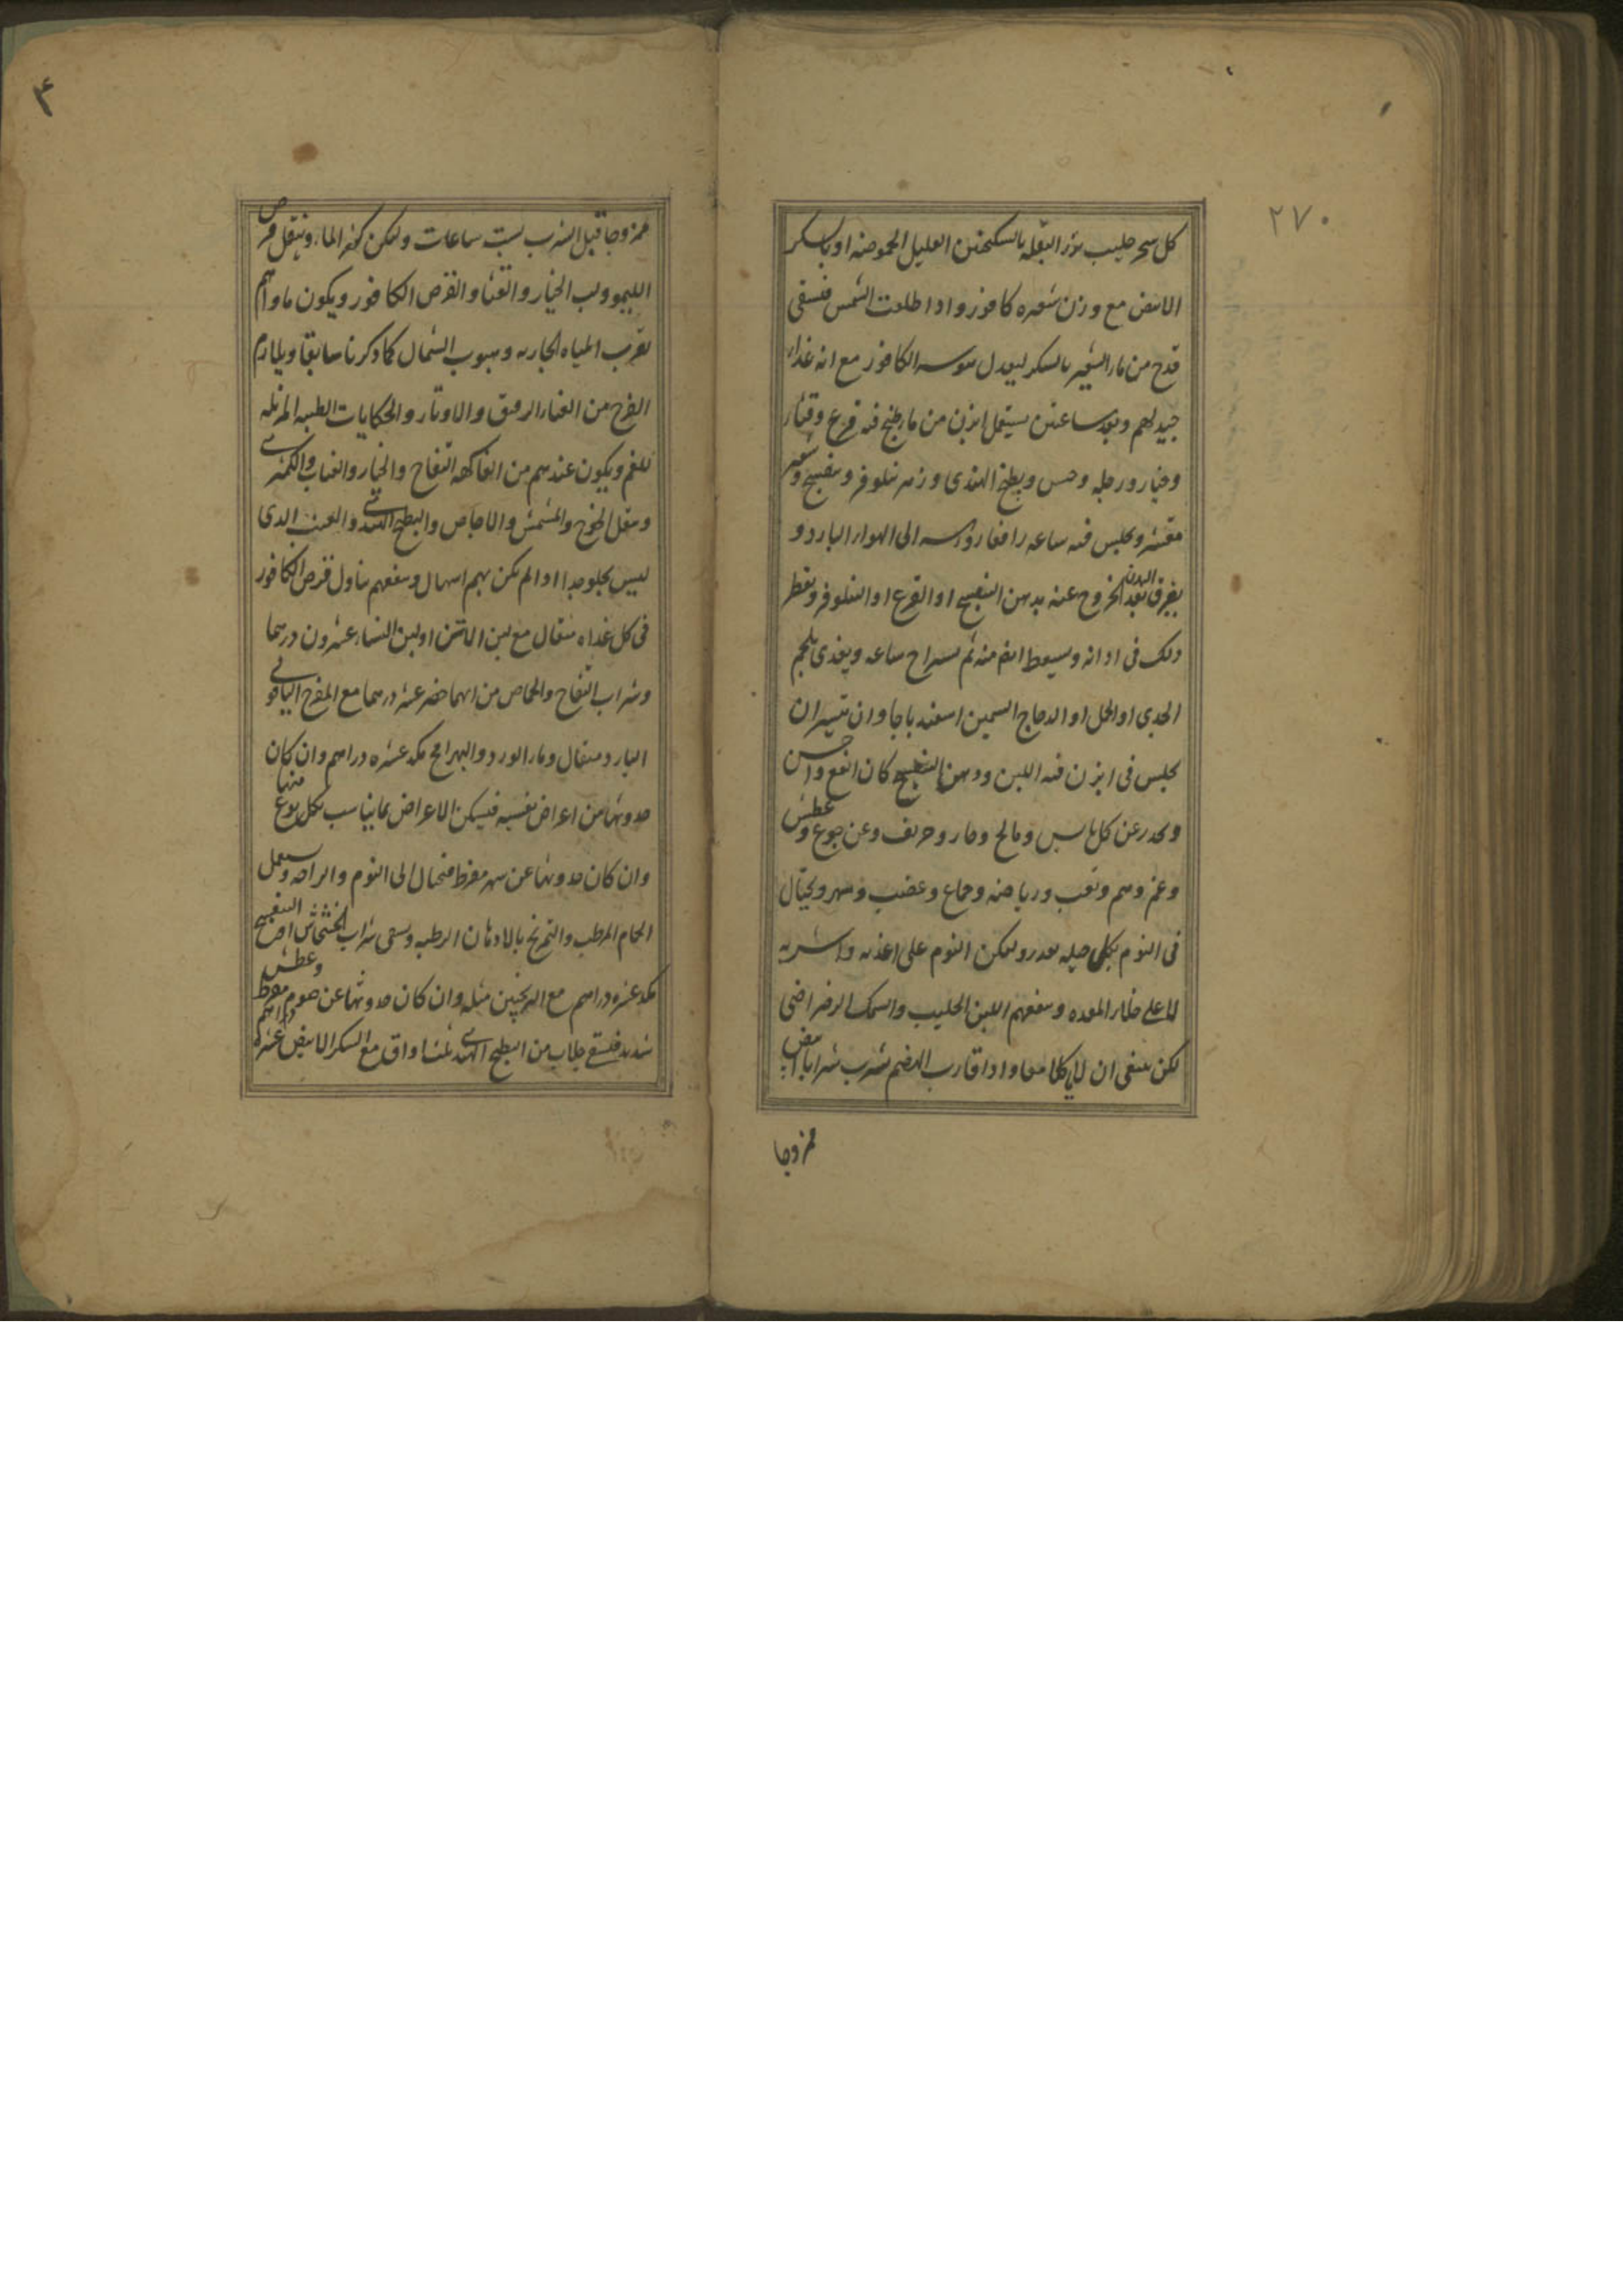 ٢٧٠
كل سحر حليب بزر البقله بالسكنجبين القليل الحموضه او بالسكر
الابيض مع وزن شعيره كافور واذا طلعت الشمس فيسقى
قدح من ماء الشعير بالسكر ليعدل يبوسه الكافور مع انه غذاء
جيد لهم وبعد ساعتين يستعمل ابزن من ماء طبخ فيه قرع وقثاء
وخيار ورجله وخس وبطيخ الهندى وزهر نيلوفر وبنفسج وشعير
مقشر ويجلس فيه ساعه رافعا رؤسه الى الهواء البارد و
يغرق البدن بعد الخروج عنه بدهن البنفسج او القرع او النيلوفر ويقطر
ذلك فى اذانه ويسعط انفه منه ثم يستراح ساعه ويغذى بلحم
الجدى او الحمل او الدجاج السمين اسفندباجا وان تيسر ان
يجلس فى ابزن فيه اللبن ودهن البنفسج كان انفع واحسن
ويحذر عن كل يابس ومالح وحار وحريف وعن جوع وعطش
وغم وهم وتعب ورياضه وجماع وغضب وسهر ويحتال
فى النوم بكل حيله يقدر وليكن النوم على اغذيه واشربه
لا على خلاء المعده وينفعهم اللبن الحليب والسمك الرضراضى
لكن ينبغى ان لا يؤكلا معا واذا قارب الهضم شرب شرابا ابيض
ممزوجا
٤
ممزوجا قبل الشرب بست ساعات وليكن كثير الماء وينتقل قرص
الليمو ولب الخيار والقثاء والقرص الكافور ويكون ماواهم
بقرب المياه الجاريه وهبوب الشمال كما ذكرنا سابقا ويلازم
الفرح من الغناء الرقيق والاوتار والحكايات الطيبه المزيله
للغم ويكون عندهم من الفاكهه التفاح والخيار والعناب والكمثرى
وينقل الخوخ والمشمش والاجاص والبطيخ الهندى والعنب الذى
ليس بحلو جدا اذا لم يكن بهم اسهال وينفعهم تناول قرص الكافور
فى كل غداه مثقال مع لبن الاتن او لبن النساء عشرون درهما
وشراب التفاح والحماض من ايهما حضر عشر درهما مع المفرح الياقوتى
البارد مثقال وماء الورد والبهرامج مكد عشره دراهم وان كان
حدوثها من اعراض نفسيه فيسكن الاعراض بما يناسب بكل نوع منها
وان كان حدوثها عن سهر مفرط فيحتال الى النوم والراحه ويستعمل
الحمام المرطب والتمريخ بالادهان الرطبه ويسقى شراب الخشخاش او البنفسج
مكد عشره دراهم مع الترنجبين مثله وان كان حدوثها عن صوم مفرط وعطش
شديد فيسقى جلاب من البطيخ الهندى ثلث اواق مع السكر الابيض عشره دراهم